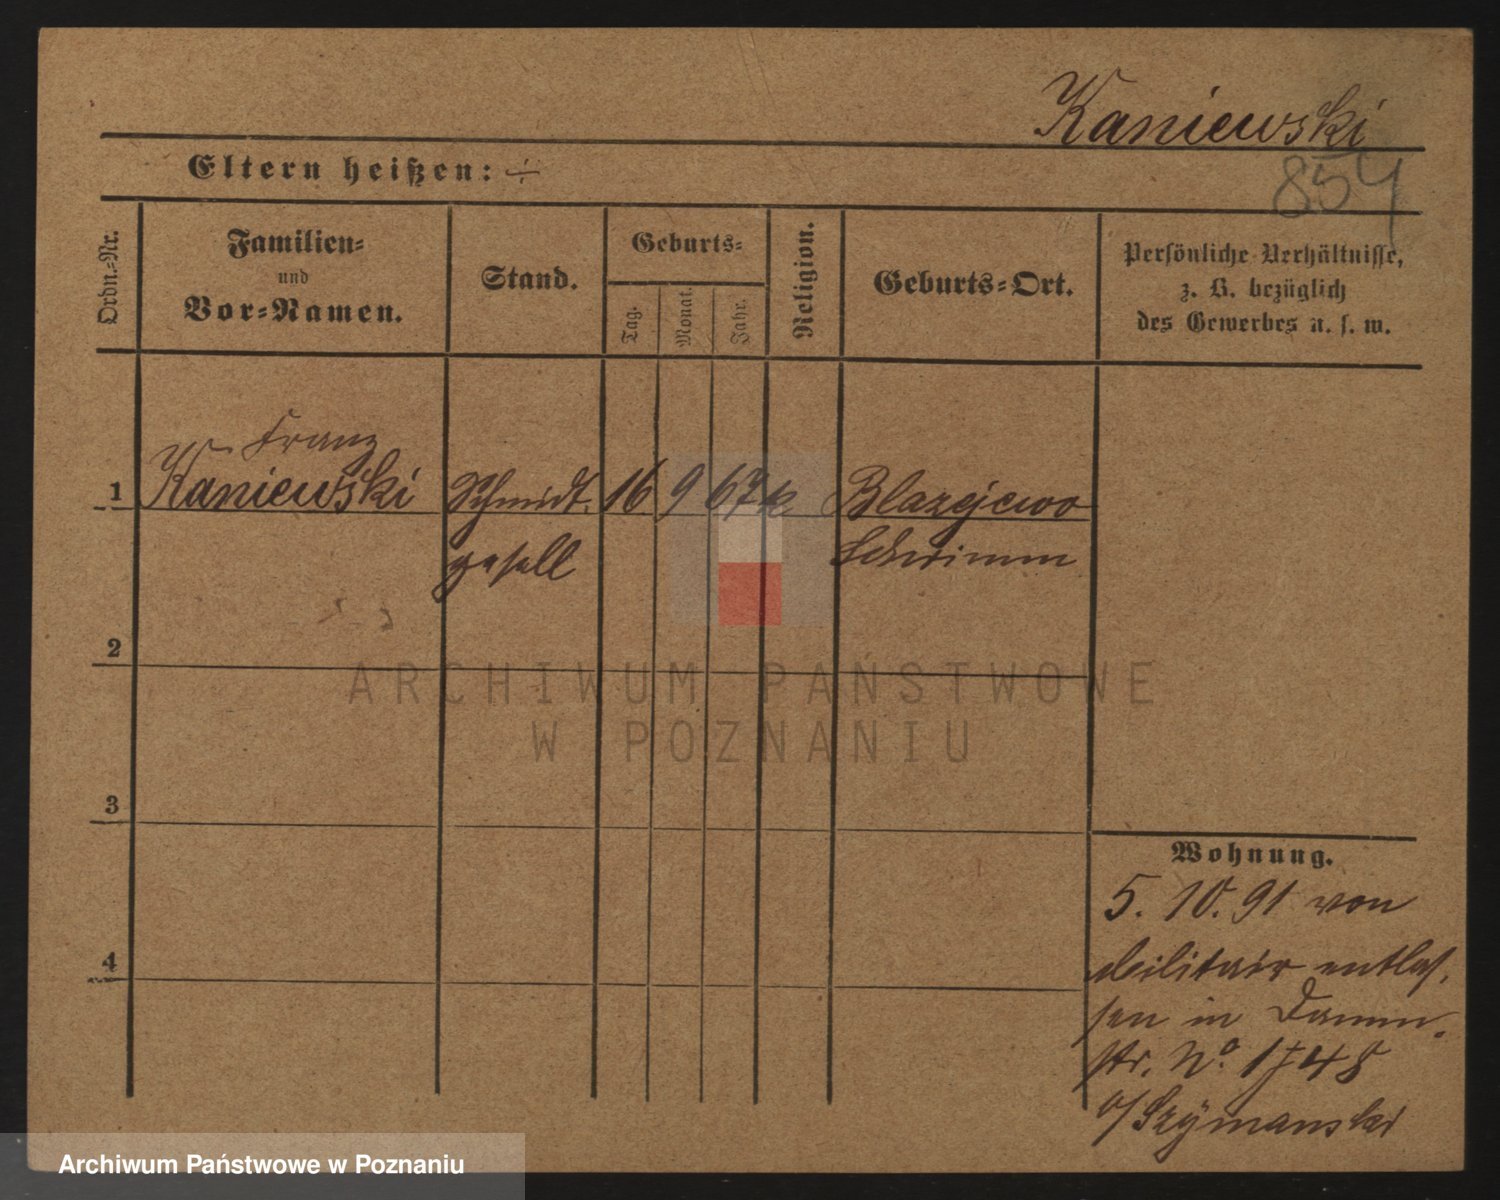 Kaniewski
854
Eltern heißen: ÷
Ordn.-Nr.
Familien-
und
Vor-Namen.
Stand.
Geburts-
Tag.
Monat.
Jahr.
Religion.
Geburts-Ort.
Persönliche Verhältnisse,
z. B. bezüglich
des Gewerbes u. s. w.
Franz
1 Kaniewski Schmidt 16 9 67 k Blazejewo
gesell Schrimm
2
3
4
ARCHIWUM PAŃSTWOWE
W POZNANIU
Wohnung.
5. 10. 91 von
Militair entlas-
sen in Damm-
str. No.
b/ Szymanski
Archiwum Państwowe w Poznaniu